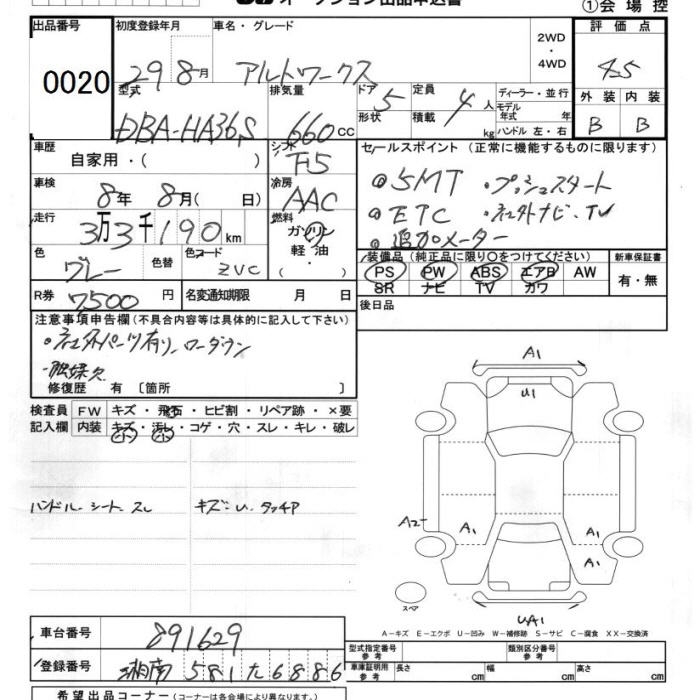 オークション出品申込書
①会場控
出品番号 初度登録年月 車名・グレード 2WD・4WD 評価点
0020 29 8月 アルトワークス 4.5
型式 排気量 ドア 定員 ディーラー・並行 外装 内装
DBA-HA36S 660cc 5 4人 モデル年式 年 B B
形状 積載 kg ハンドル 左・右
車歴 シフト セールスポイント (正常に機能するものに限ります)
自家用・( ) F5
◎5MT ・プッシュスタート
車検 冷房
8年 8月( 日) AAC
◎ETC ・社外ナビ、TV
走行 燃料
3万3千190km ガソリン・軽油・
◎追加メーター
色 色替 色コード
グレー ZVC
装備品 (純正品に限り〇をつけてください) 新車保証書
PS PW ABS エアB AW 有・無
SR ナビ TV カワ
R券 7500円 名変通知期限 月 日
後日品
注意事項申告欄 (不具合内容等は具体的に記入して下さい)
・社外パーツ有り、ローダウン
・触媒欠
修復歴 有 〔箇所 〕
検査員 FW キズ・飛石・ヒビ割・リペア跡・×要
記入欄 内装 キズ・汚レ・コゲ・穴・スレ・キレ・破レ
ハンドル、シート、スレ キズ・U、タッチア
A1
U1
A2
A1
A1
A1
スペア
UA1
A-キズ E-エクボ U-凹み W-補修跡 S-サビ C-腐食 XX-交換済
車台番号 891629
型式指定番号 参考 類別区分番号 参考
登録番号 湘南 581 た 6886
車庫証明用 参考 長さ cm 幅 cm 高さ cm
希望出品コーナー (コーナーは各会場により異なります)